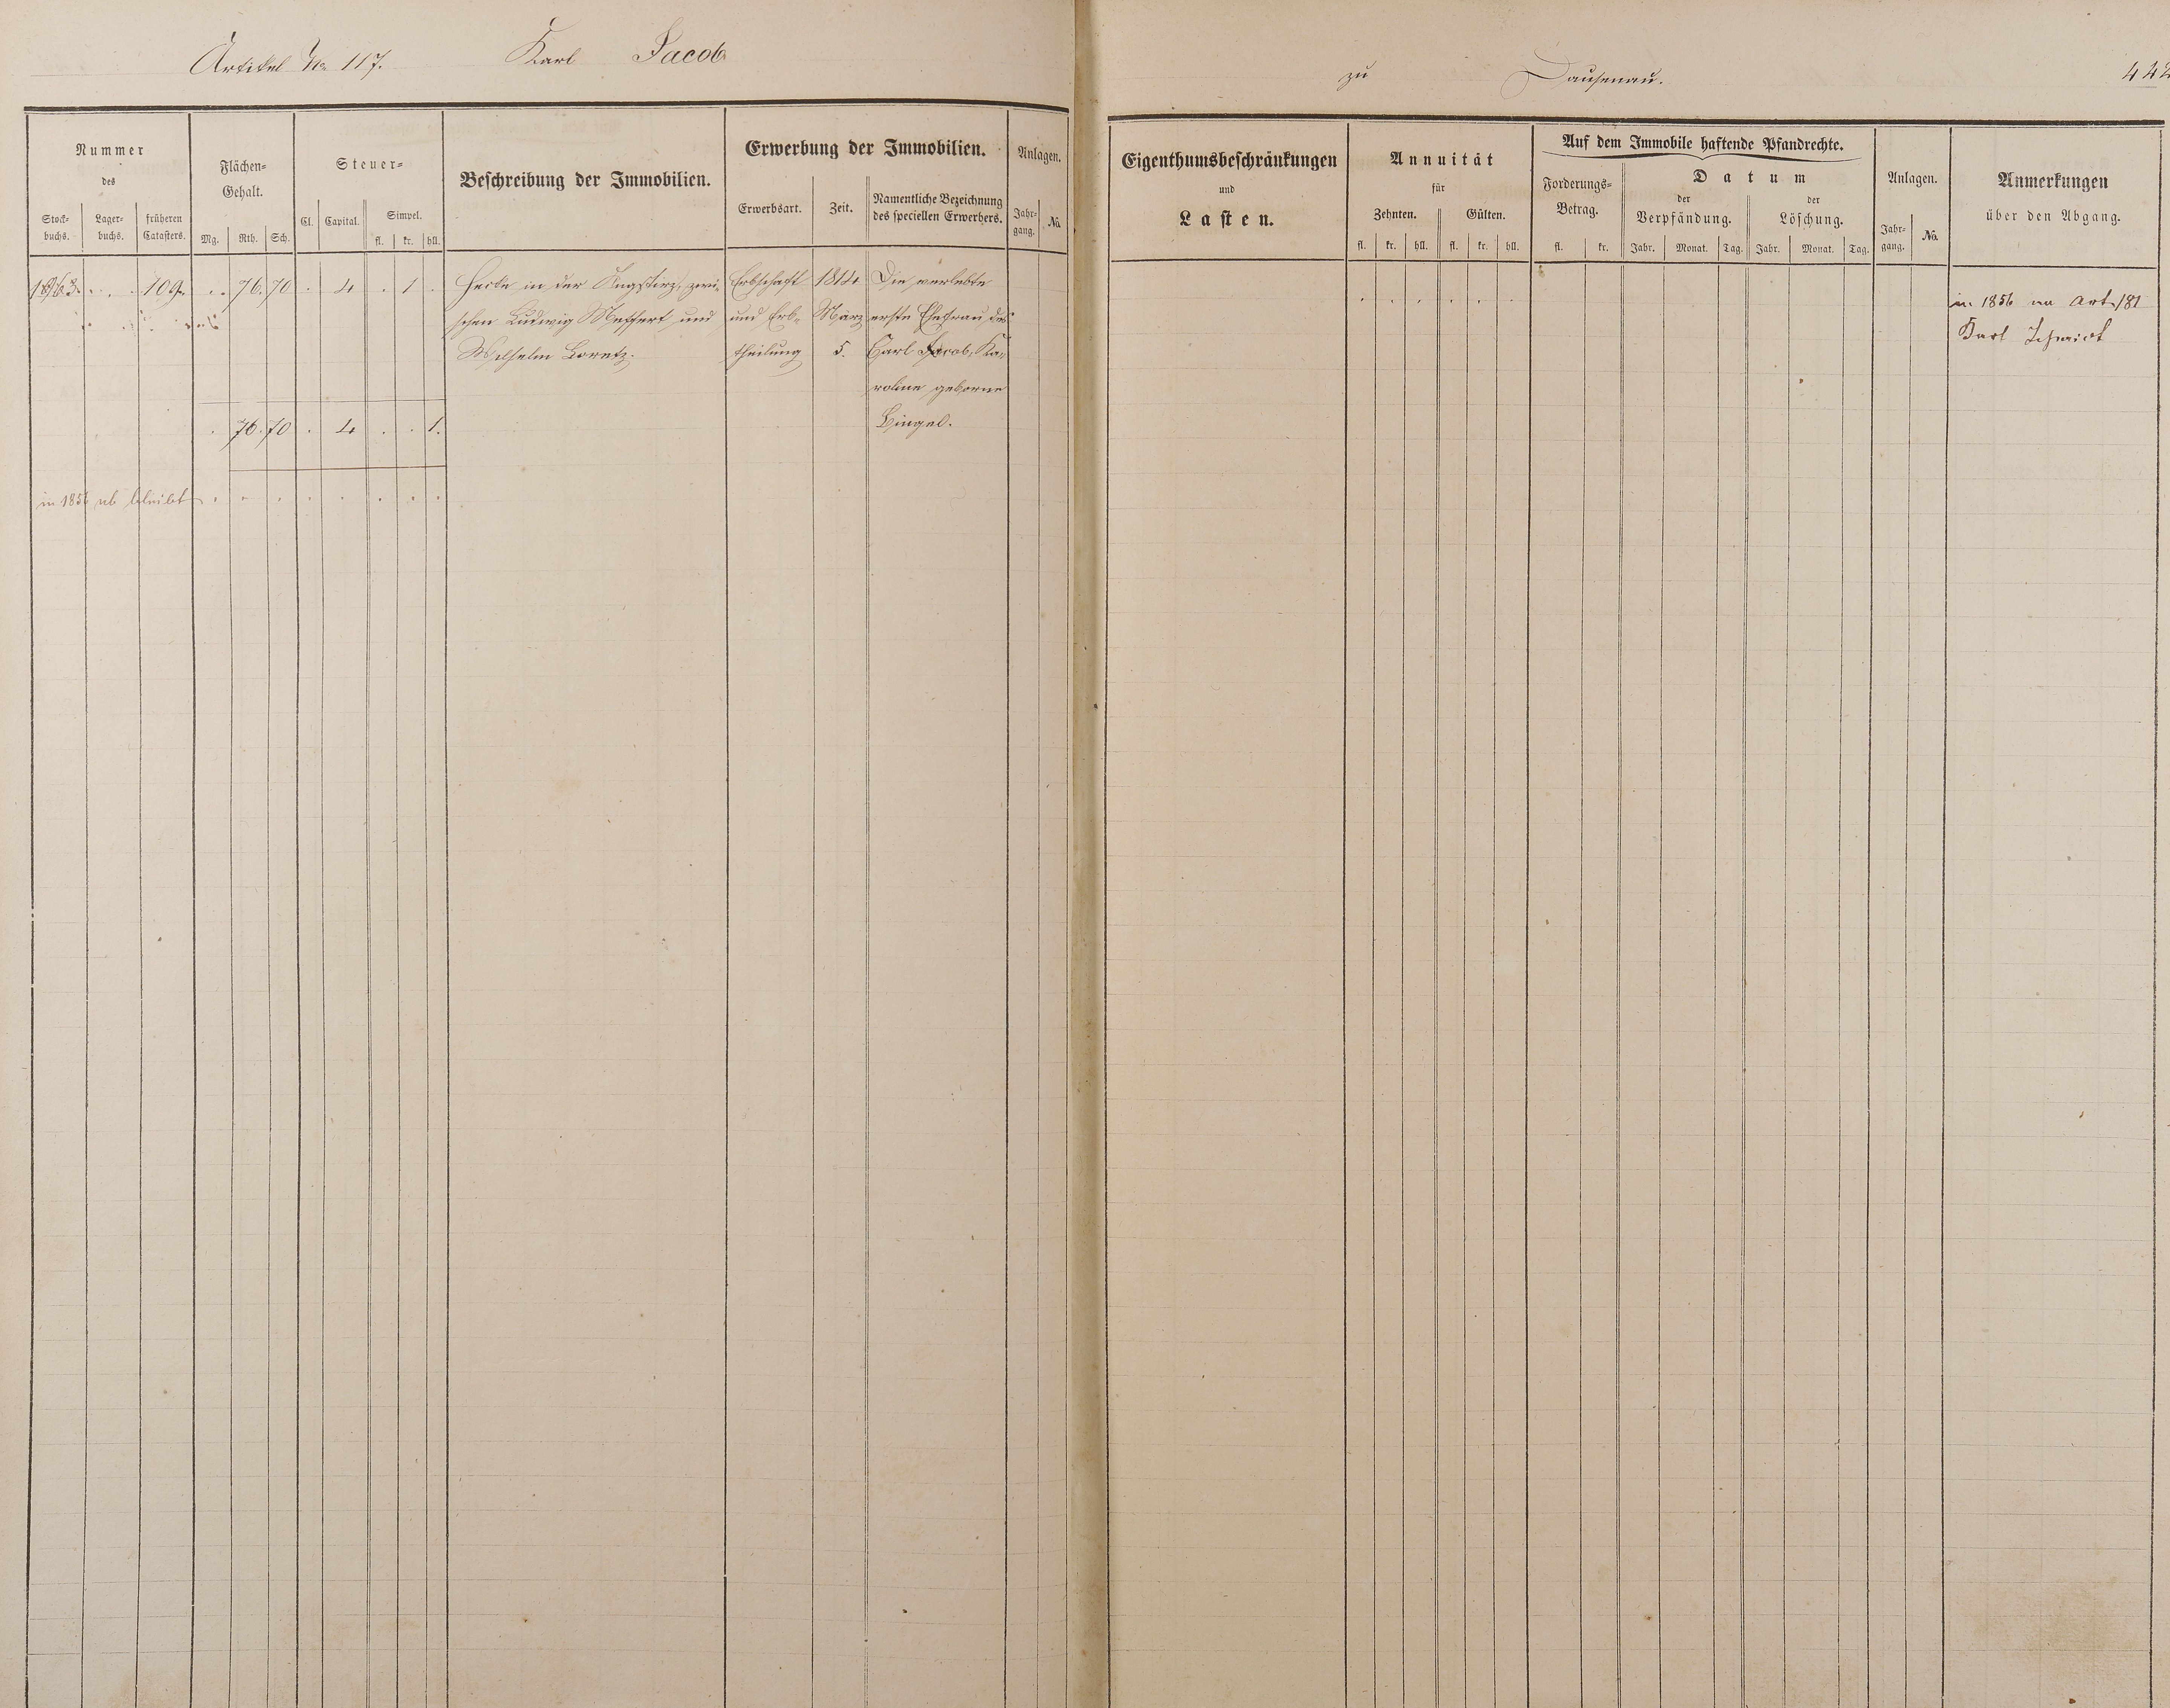 Artikel No 117. Karl Jacob
zu Dausenau. 442
Nummer
des
Stock-
buchs.
Lager-
buchs.
früheren
Catasters.
Flächen-
Gehalt.
Mg. Rth. Sch.
Steuer-
Cl. Capital. Simpel.
fl. kr. hll.
Beschreibung der Immobilien.
Erwerbung der Immobilien.
Erwerbsart. Zeit.
Namentliche Bezeichnung
des speciellen Erwerbers.
Anlagen.
Jahr-
gang.
No.
Eigenthumsbeschränkungen
und
Lasten.
Annuität
für
Zehnten. Gülten.
fl. kr. hll. fl. kr. hll.
Auf dem Immobile haftende Pfandrechte.
Forderungs-
Betrag.
fl. kr.
Datum
der
Verpfändung.
der
Löschung.
Jahr. Monat. Tag. Jahr. Monat. Tag.
Anlagen.
Jahr-
gang.
No.
Anmerkungen
über den Abgang.
109. 76. 70 4 1
Hecke in der, zwi-
schen Ludwig Meffert und
Wilhelm Loretz.
Erbschaft
und Erb-
theilung
1814
März
5.
Die verlebte
erste Ehefrau des
Carl Jacob, Ka-
roline geborne
Bingel.
in 1856 an Art. 181
Karl Schmidt
76. 70 4 1.
in 1856 ab bleibt